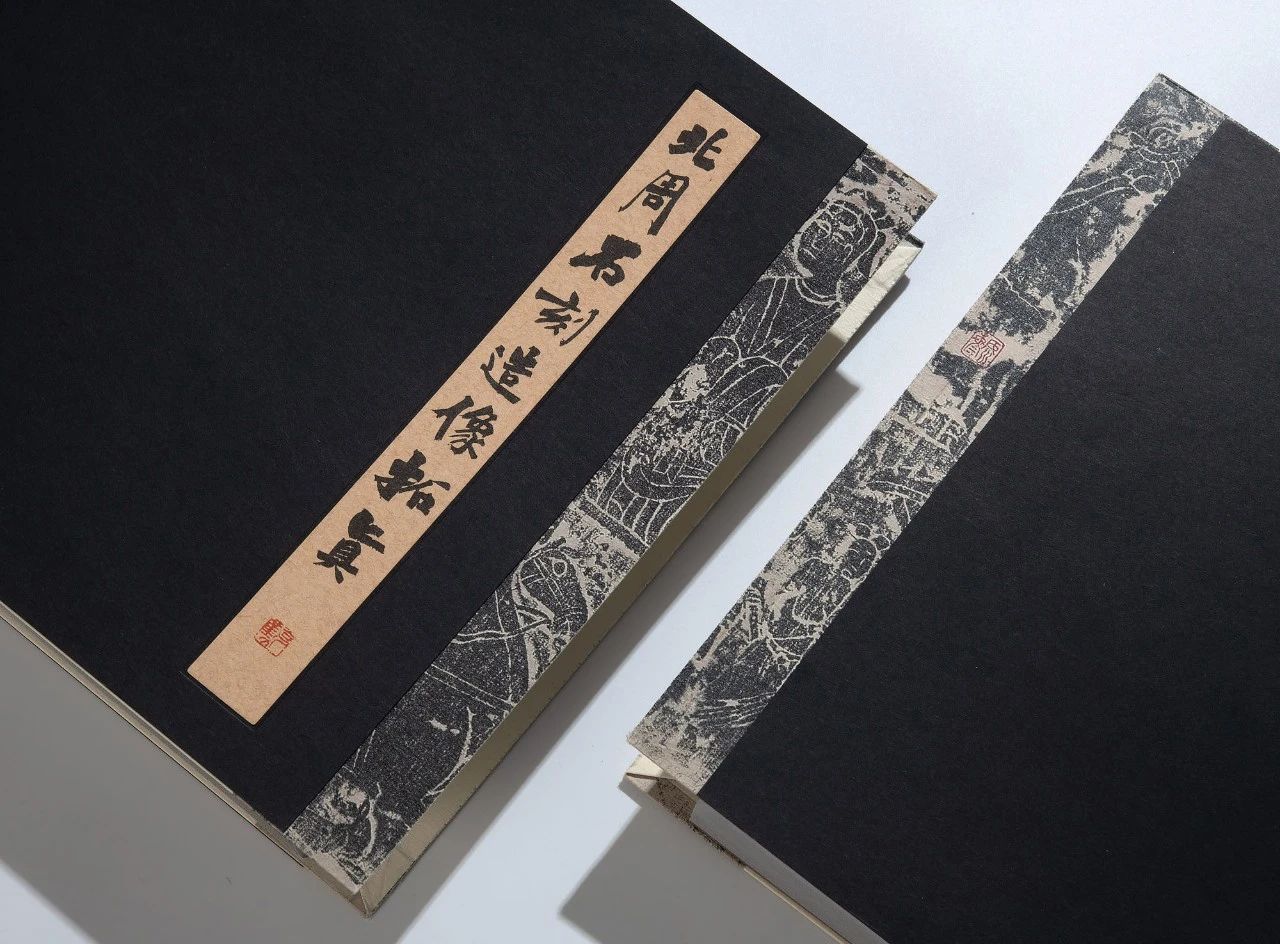 北周石刻造像拓眞